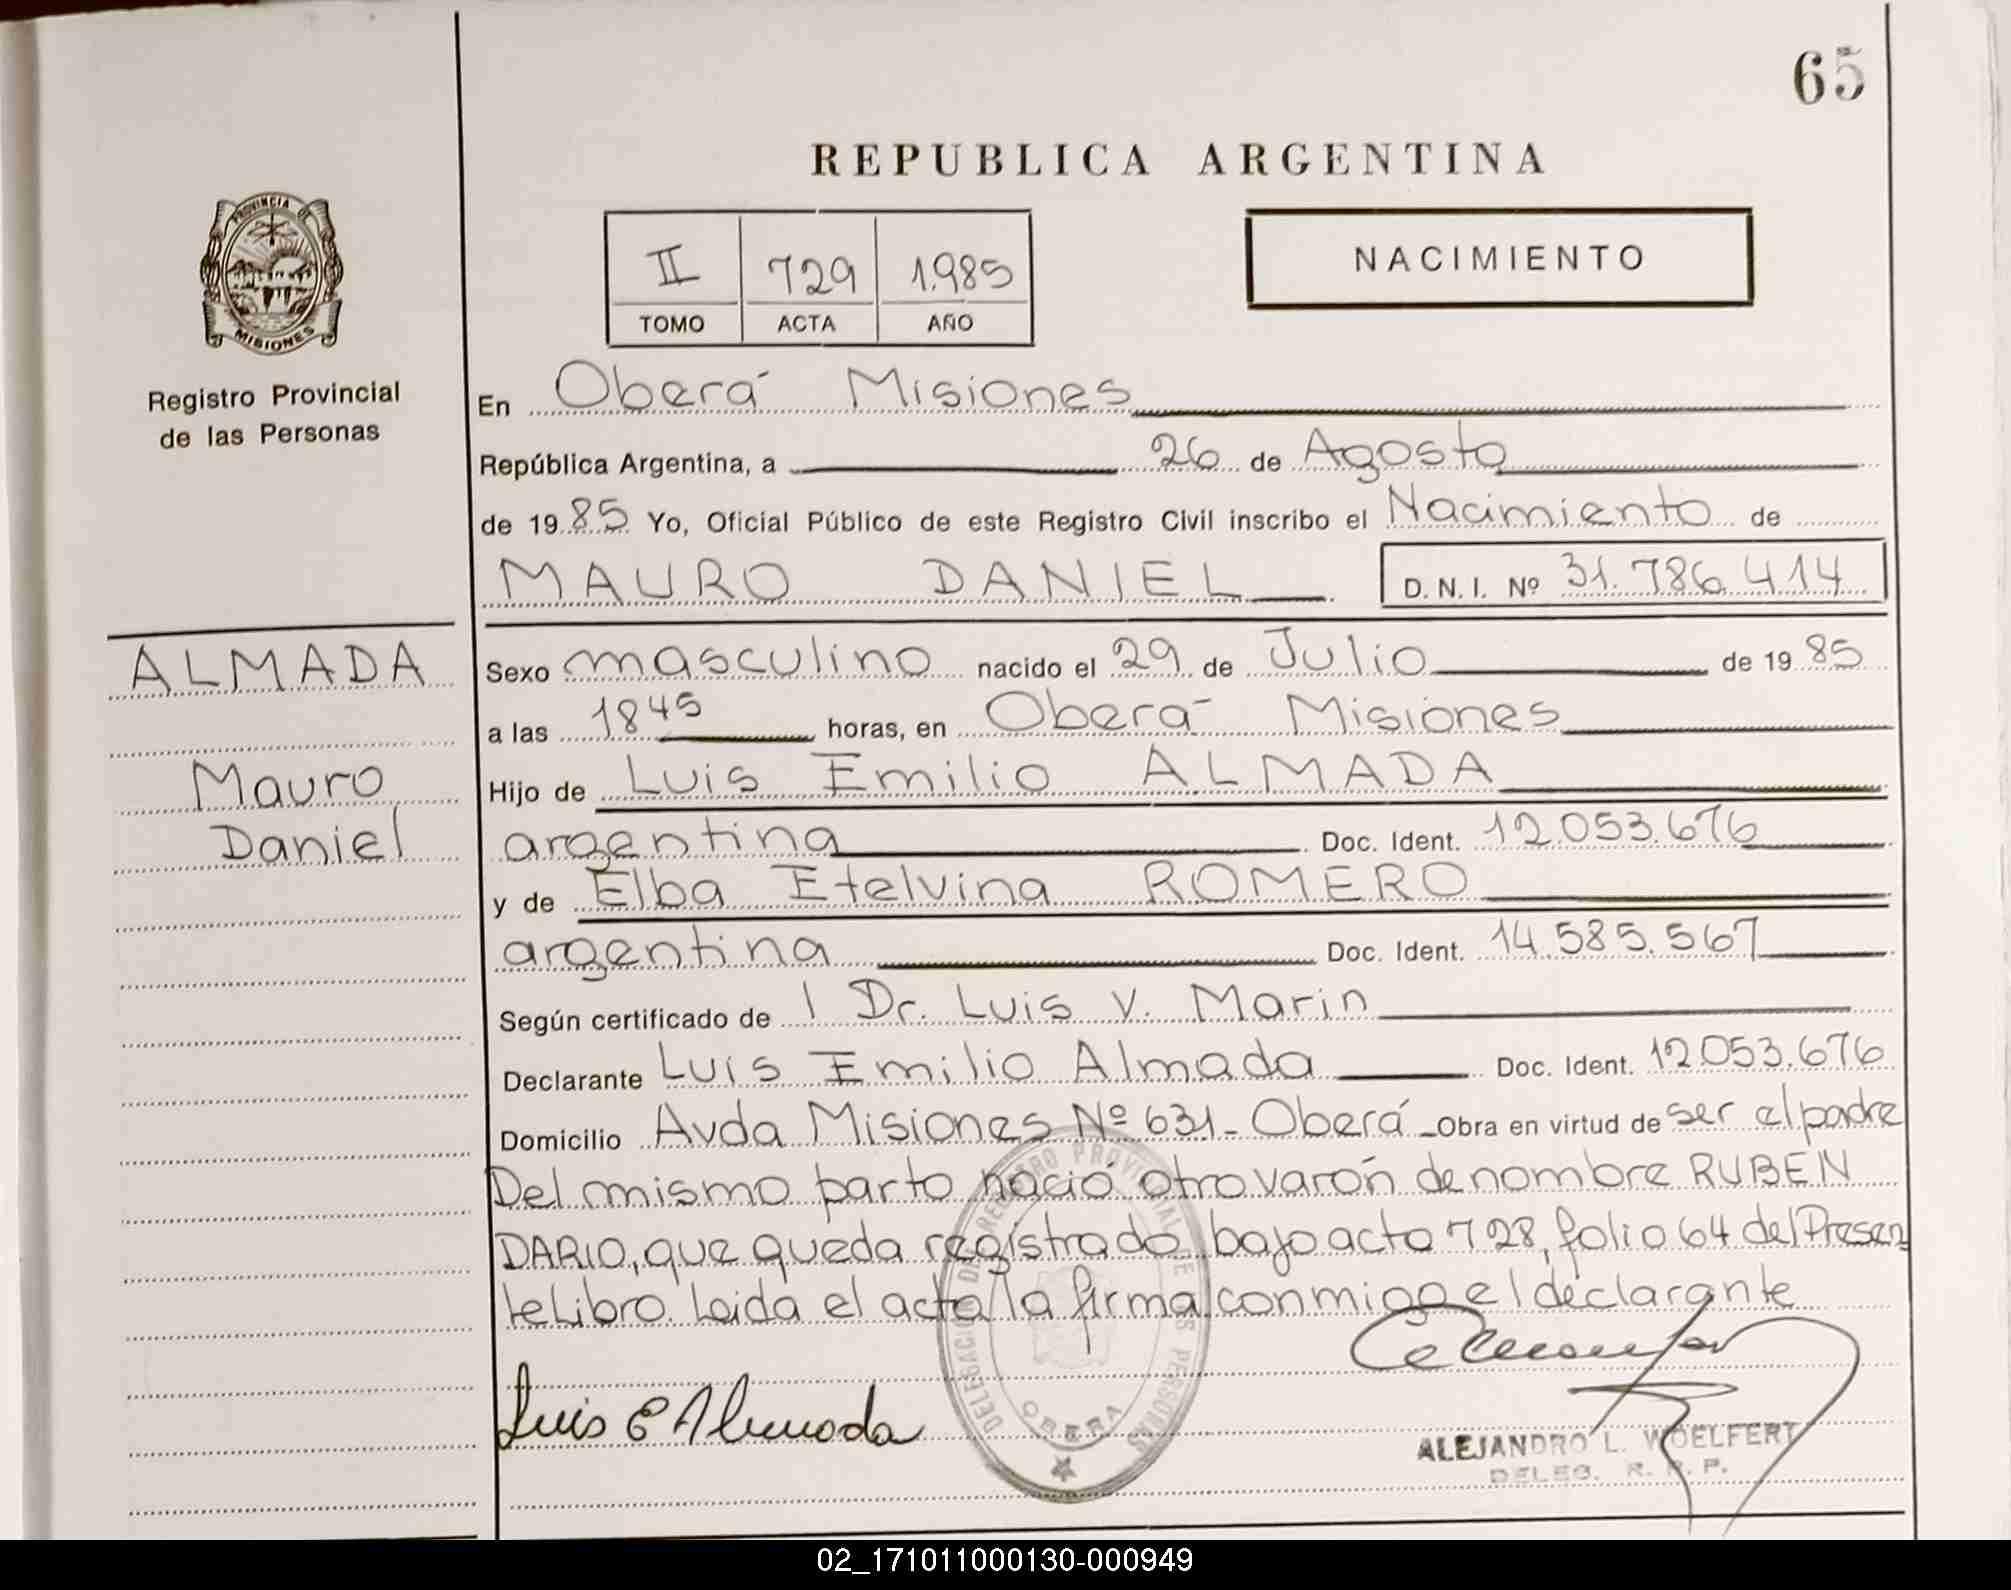 65
REPUBLICA ARGENTINA
PROVINCIA DE
MISIONES
Registro Provincial
de las Personas
II 729 1.985
TOMO ACTA AÑO
NACIMIENTO
En Oberá Misiones
República Argentina, a 26 de Agosto
de 19 85 Yo, Oficial Público de este Registro Civil inscribo el Nacimiento de
MAURO DANIEL D.N.I. Nº 31.786.414
ALMADA
Mauro
Daniel
Sexo masculino nacido el 29 de Julio de 19 85
a las 1845 horas, en Oberá Misiones
Hijo de Luis Emilio ALMADA
argentina Doc. Ident. 12.053.676
y de Elba Etelvina ROMERO
argentina Doc. Ident. 14.585.567
Según certificado de l Dr. Luis V. Marin
Declarante Luis Emilio Almada Doc. Ident. 12.053.676
Domicilio Avda Misiones Nº 631 - Oberá - Obra en virtud de ser el padre
Del mismo parto nació otro varón de nombre RUBEN
DARIO, que queda registrado bajo acta 728, folio 64 del Presen
te Libro. Leida el acta la firma conmigo el declarante
Luis E Almada
DELEGACION DE REGISTRO PROVINCIAL DE LAS PERSONAS
OBERA
ALEJANDRO L. WOELFERT
DELEG. R. P. P.
02_171011000130-000949